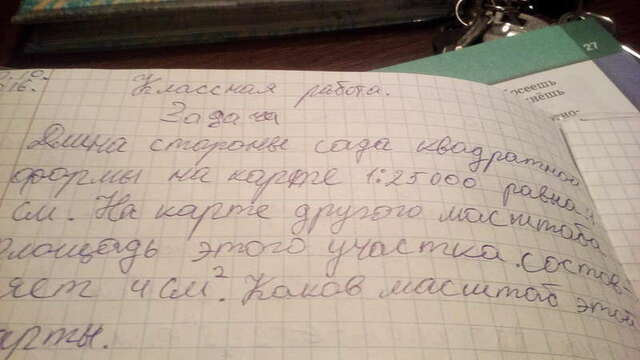 Классная работа.
Задача
Длина стороны сада квадратной
формы на карте 1:25000 равна
см. На карте другого масштаба
площадь этого участка состав-
яет 4 см². Каков масштаб этой
арты.
27